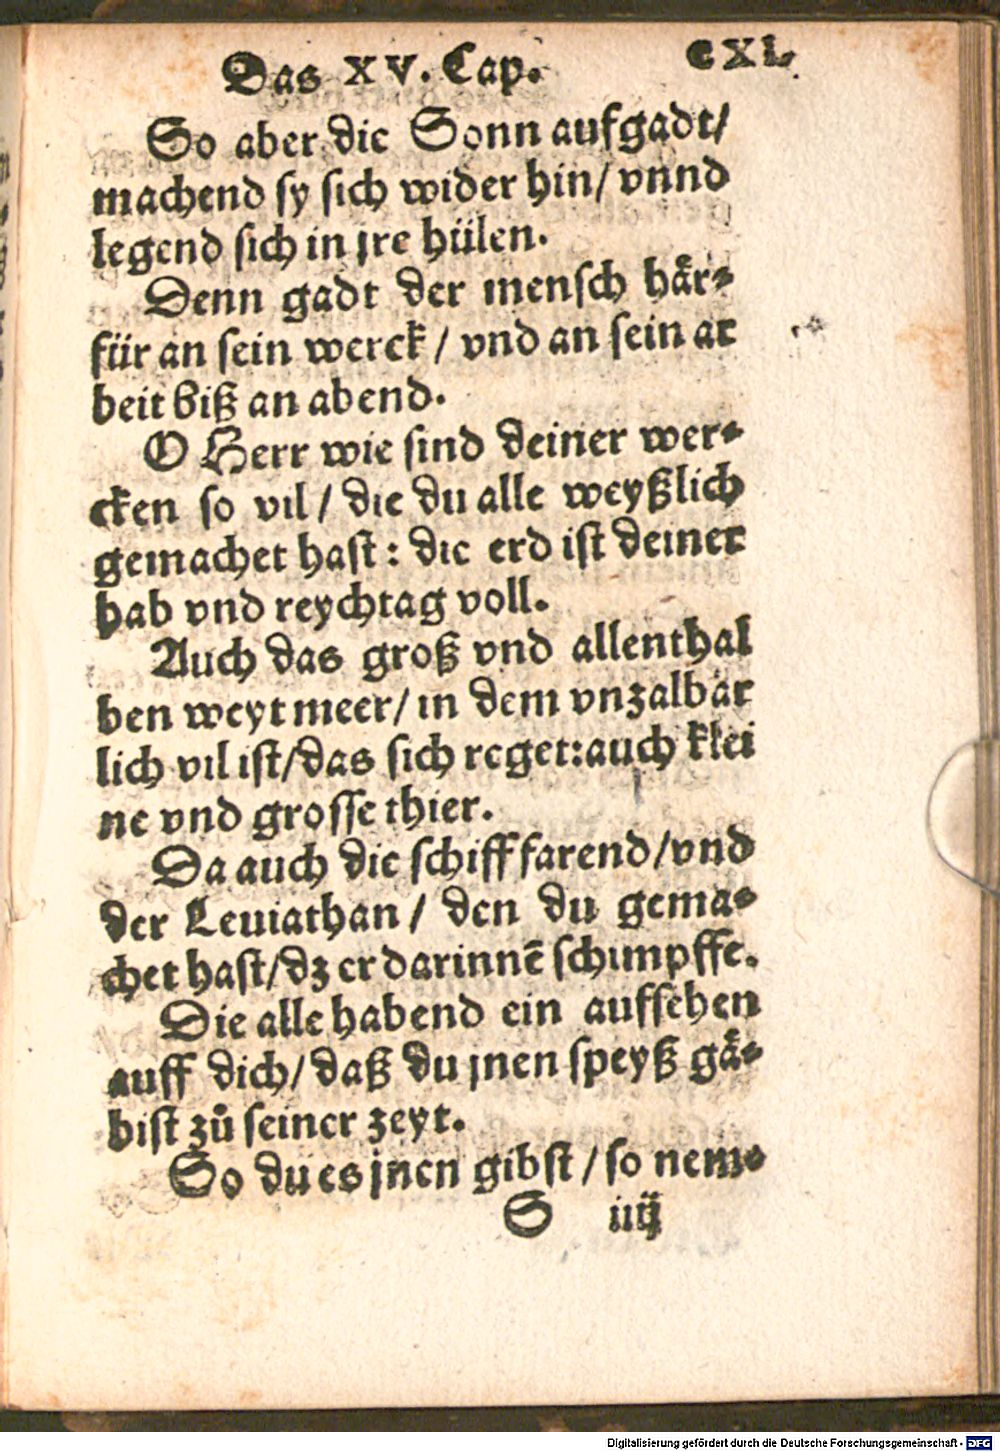 Das XV. Cap. CXL.
So aber die Sonn aufgadt/
machend sy sich wider hin/ vnnd
legend sich in jre hülen.
Denn gadt der mensch hår⸗
für an sein werck / vnd an sein ar
beit biß an abend.
O Herr wie sind deiner wer⸗
cken so vil / die du alle weyßlich
gemachet hast : die erd ist deiner
hab vnd reychtag voll.
Auch das groß vnd allenthal
ben weyt meer/ in dem vnzalbar
lich vil ist/das sich reget:auch klei
ne vnd grosse thier.
Da auch die schiff farend/vnd
der Leuiathan / den du gema⸗
chet hast/dz er darinnē schimpffe.
Die alle habend ein aufsehen
auff dich/daß du jnen speyß gå⸗
bist zů seiner zeyt.
So du es jnen gibst / so nem⸗
S iiij
Digitalisierung gefördert durch die Deutsche Forschungsgemeinschaft - DFG